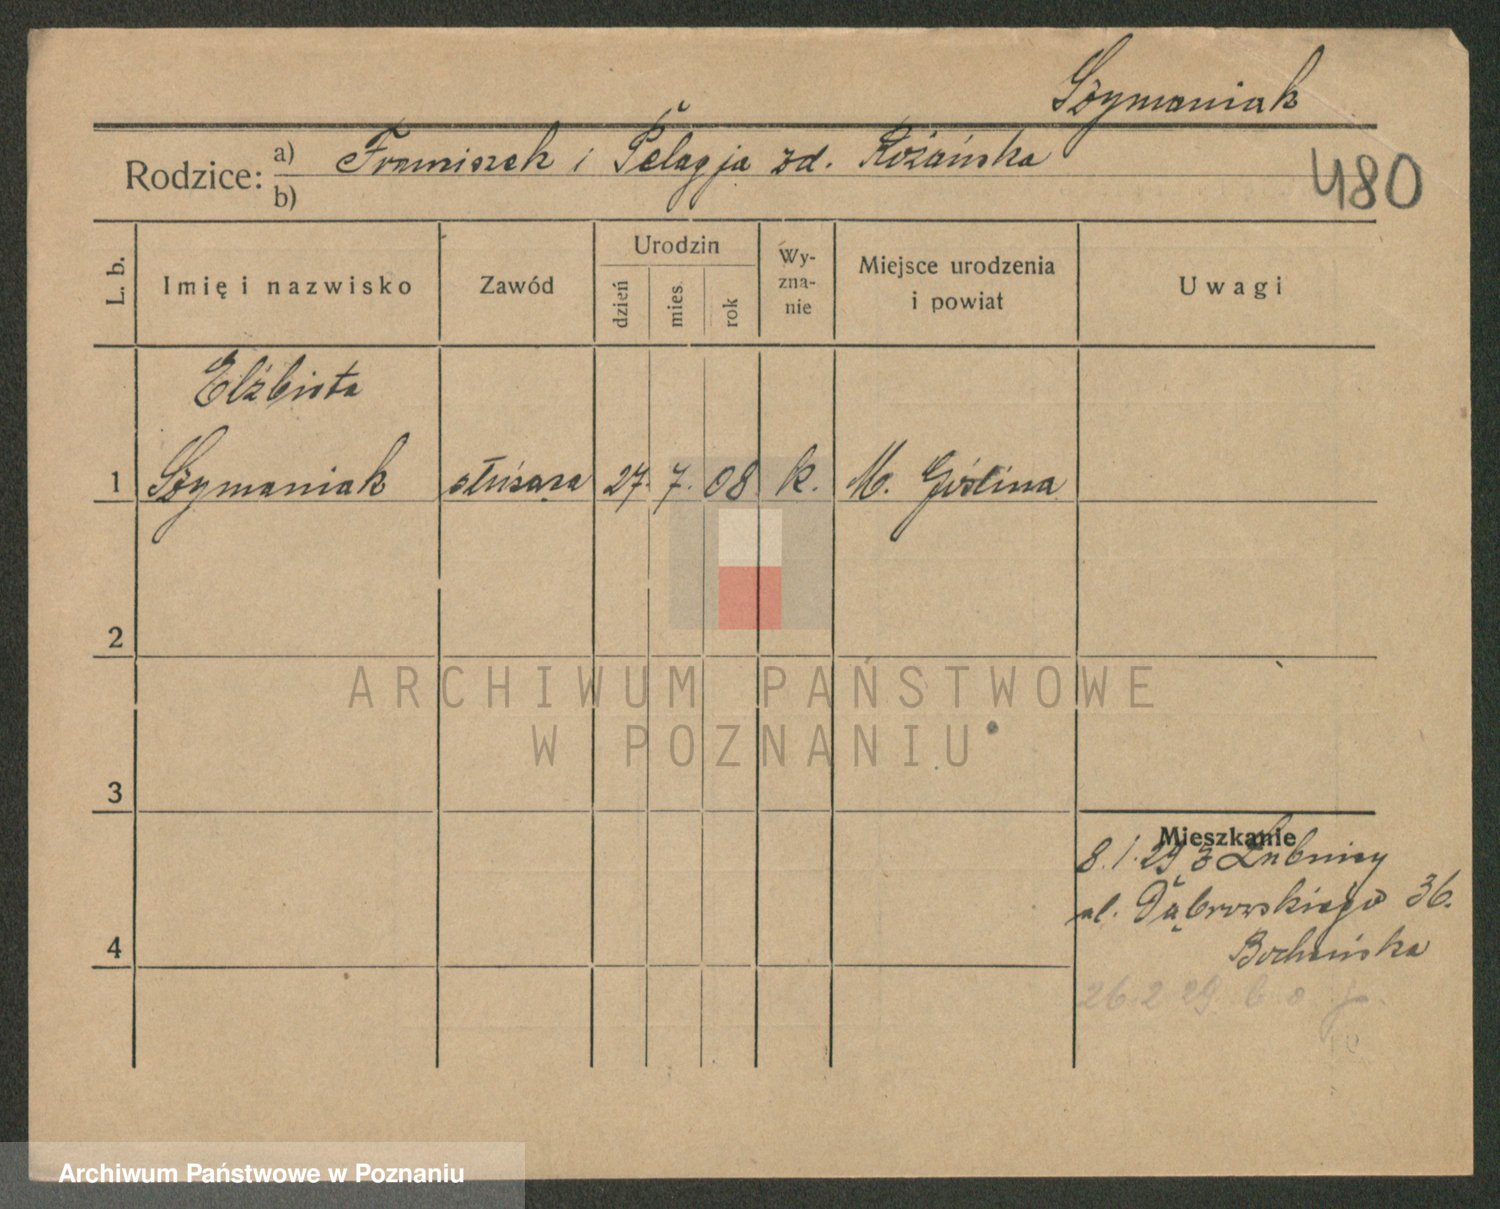 Szymaniak
Rodzice: a) Franciszek i Pelagja zd. Różańska
b)
480
L. b.
Imię i nazwisko
Zawód
Urodzin
dzień
mies.
rok
Wy-
zna-
nie
Miejsce urodzenia
i powiat
Uwagi
Elżbieta
1 Szymaniak służąca 27. 7. 08 k. M. Goślina
2
ARCHIWUM PAŃSTWOWE
W POZNANIU
3
Mieszkanie
8.1.29 z Łubnicy
ul. Dąbrowskiego 36.
4
Bocheńska
26.2.29.
Archiwum Państwowe w Poznaniu